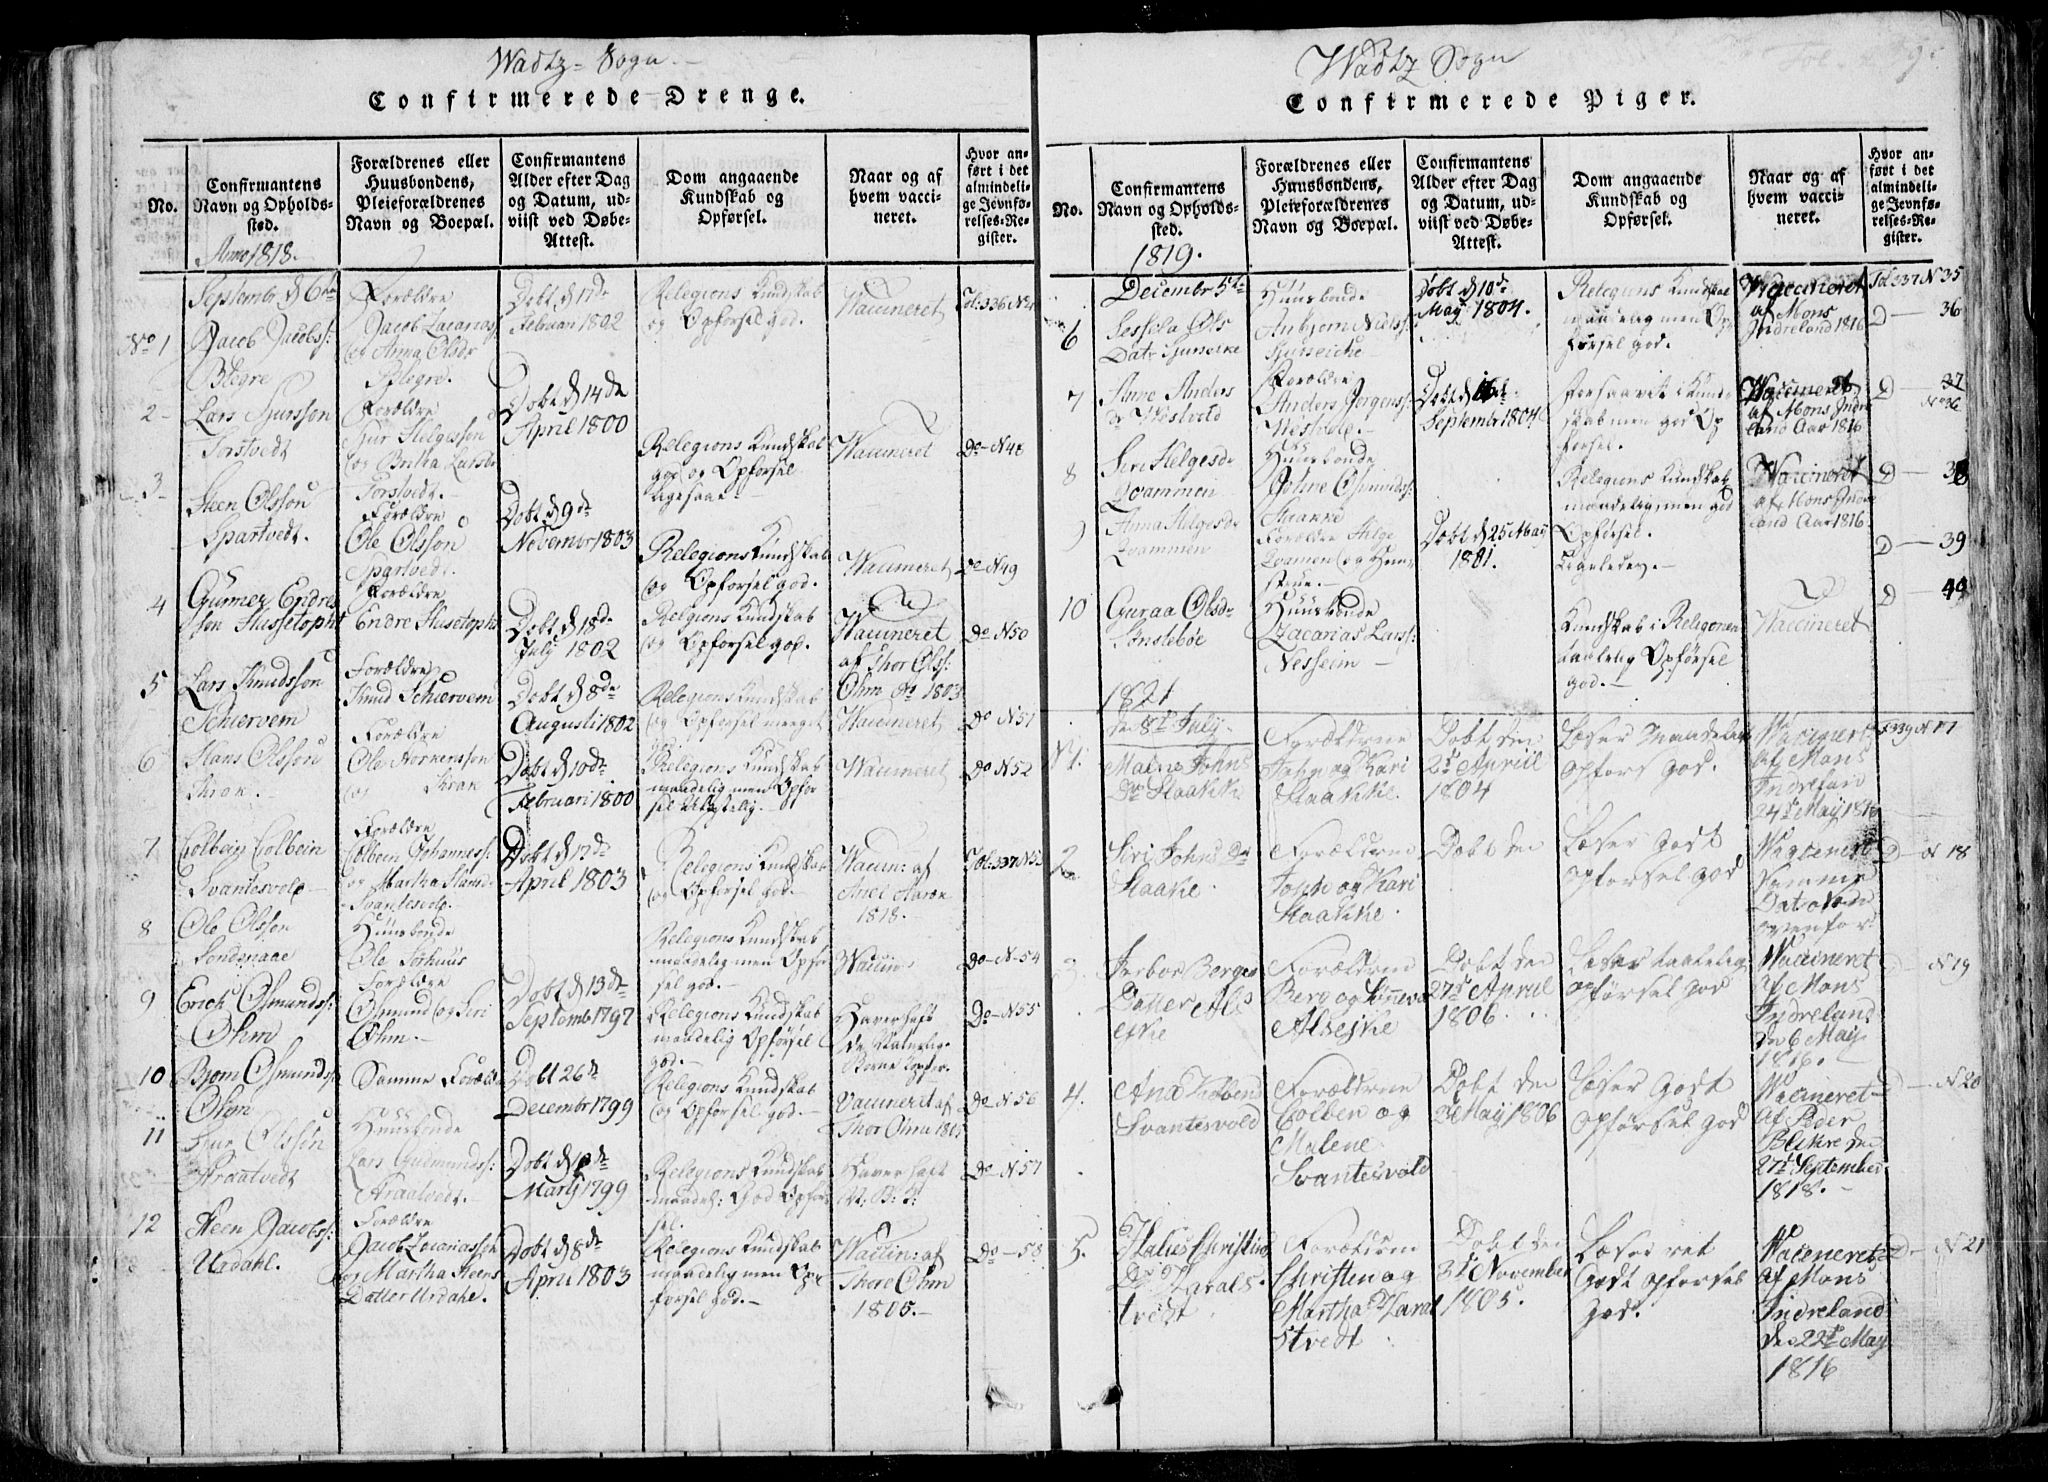 Wadtz-Sogn
Confirmerede Drenge.
No.
Confirmantens
Navn og Opholds-
sted.
Anno 1818.
Forældrenes eller
Huusbondens,
Pleieforældrenes
Navn og Boepæl.
Confirmantens
Alder efter Dag
og Datum, ud-
viist ved Døbe-
Attest.
Dom angaaende
Kundskab og
Opførsel.
Naar og af
hvem vacci-
neret.
Hvor an-
ført i det
almindeli-
ge Jevnfø-
relses-Re-
gister.
No 1
Jacob Jacobs:
Blegre
Forældre
Jacob Zacarias
og Anna Olsdr
Blegre.
Dobt d 17de
Februari 1802
Relegions Kundskab
og Opførsel god.
Waccineret
Fol: 336 No
2
Lars Sjursson
Torstvedt
Forældre
Sjur Helgesson
og Britha Larsdr
Torstvedt.
Dobt d 14de
April 1800
Relegions Kundskab
god og Opforsel
ligesaa
Waccineret
Do N 48
3
Steen Olsson
Spartvedt.
Forældre
Ole Olsson
Spartvedt.
Dobt d 9de
Novembr 1803
Relegions Kundskab
og Opforsel god.
Waccineret
Do N 49
4
Gunner Endres
son Hussetopht
Forældre
Endre Husetopht
Dobt d 18de
July 1802
Relegions Kundskab
og Opforsel god.
Waccineret
af Thor Ols:
Øhm Ao 1803
Do N 50
5
Lars Knudsson
Schiervem
Forældre
Knud Schiervem
Dobt d 8de
Augusti 1802
Relegions Kundskab
og Opforsel meeget
god.
Waccineret
Do N 51
6
Hans Olsson
Forældre
Ole
Dobt d 10de
Februari 1800
Relegions Kundskab
maadelig men Opfor
sel
Waccineret
Do N 52
7
Colbein Colbein
Svantesvold
Forældre
Colbeen Johannes:
og Martha
Svantesvold.
Dobt d 17de
April 1803
Relegions Kundskab
og Opforsel god.
Waccin: af
1818.
Fol: 337 N 53
8
Ole Olsson
Sondenaae
Huusbonde
Ole
Relegions Kundskab
maadelig men Opfor
sel god.
Waccin
Do N 54
9
Erich Osmunds:
Øhm
Forældre
Osmund og Siri
Øhm.
Dobt d 13de
Septemb 1797
Relegions Kundskab
maadelig Opførsel
god.
Haver haft
de Naturlig
Børne Kopper.
Do N 55
10
Bjørn Osmunds:
Øhm
Samme Foræld
Dobt 26de
Decembr 1799
Relegions Kundskab
og Opforsel god.
Vaccineret af
Thor Øhm
Do N 56
11
Sjur Olsson
Araatvedt
Huusbonde
Lars Gudmunds:
Araatvedt.
Dobt d
Marti 1799
Relegions Kundskab
maadel: God Opfor
sel.
Haver haft
N: B: K:
Do N 57
12
Steen Jacobs:
Urdahl.
Forældre
Jacob Zacariasson
og Martha Steens
Datter Urdahl.
Dobt d 8de
April 1803
Relegions Kundskab
maadelig men Op
førsel god.
Waccin: af
Thore Øhm
1805.
Do 58
Wadtz Sogn
Confirmerede Piger.
No.
Confirmantens
Navn og Opholds-
sted.
1819.
Forældrenes eller
Huusbondens,
Pleieforældrenes
Navn og Boepæl.
Confirmantens
Alder efter Dag
og Datum, ud-
viist ved Døbe-
Attest.
Dom angaaende
Kundskab og
Opførsel.
Naar og af
hvem vacci-
neret.
Hvor an-
ført i det
almindeli-
ge Jevnfø-
relses-Re-
gister.
Decembr 5te
6
Ols
Datr
Huusbonde
Anbjorn Niels:
Dobt d 10de
May 1804.
Relegions Kundskab
maadelig men Op
førsel god.
Waccineret
af Mons
Indreland 1816
Fol 337 N 35
D 36
7
Anne Anders
Dr Westvold
Forældre
Anders Jorgens:
Westvold.
Dobt d 16de
Septembr 1804
skab men god Op
forsel.
Waccineret
af Mons Indre
land Aar 1816
D 37
8
Siri Helgesdr
Qvammen
Huusbonde
Osmunds:
Relegions Kundskab
maadelig, men god
Opførsel.
Waccineret
af Mons Indre
land Aar 1816
D
9
Anna Helgesdr
Qvammen
Forældre Helge
Qvamen og Hans
Dobt d 25 May
1801.
Ligeledes.
D 39
10
Guraa Olsdr
Huusbonde
Zacarias Lars:
Nesseim
Kundskab i Religionen
taalelig Opførsel
god.
Waccineret
D
1821
den 8de July.
N 1.
Johns
Dr Haakke
Forældrene
John og Kari
Haakke.
Dobt den
2de Apriil
1804
Læser Maadelig
opførs god.
Vaccinert
af Mons
Indrelan
24de May 1816
F 339 N 17
2
Siri Johns Dr
Haake.
Forældrene
John og Kari
Haakke.
Dobt den
Læser Godt
opførsel god
Vaccineret
samme
Dato som
ovenfor
D N 18
3.
Børges
Datter Als
eske
Forældrene
Berg og
Alseske
Dobt den
27de Apriil
1806
Læser taalelig
opførsel god
Vaccineret
af Mons
Indreland
Den 6 May
1816.
N 19
4.
Ana
Svantesvold
Forældrene
Colben og
Malene
Svantesvold
Dobt den
May 1806
Læser Godt
opførsel god
Vaccineret
af Peder
den
27de September
1818.
D N 20
5.
Malie Christens
Dr Haralds
tvedt
Forældrene
Christen og
Martha Haral
stvedt
Dobt den
3de November
1805.
Læser ret
Godt opførsel
god.
Vacceneret
af Mons
Indreland
den 22de May
1816
D N 21